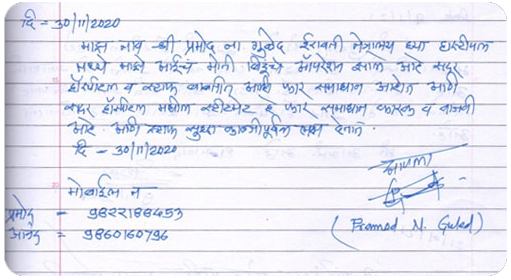 दि = 30/11/2020
माझ नाव श्री प्रमोद ना गुळेद ईरावती नेत्रालय ह्या हास्पीटल
मध्ये माझे आईचे मोती बिंदूचे ऑपरेशन झाले आहे सदर
हॉस्पीटल व स्टाफ बाबतीत आम्ही फार समाधान आहोत आणि
सदर हॉस्पीटल मधील ट्रीटमेंट हे फार समाधान कारक व वाजवी
आहे. आणि स्टाफ सुध्दा काळजीपूर्वक लक्ष देतात.
दि - 30/11/2020
आपला
मोबाईल नं
प्रमोद = 9822188453
= 9860160796
(Pramod N. Guled)